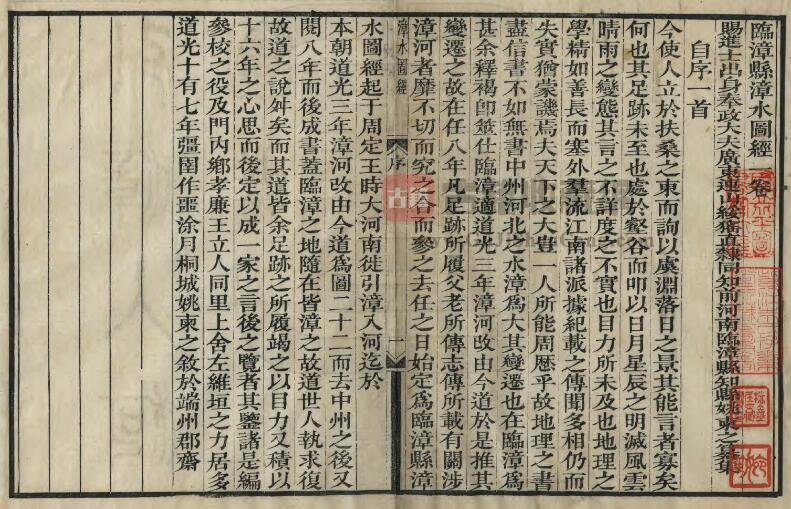 臨漳縣漳水圖經一卷
賜進士出身奉政大夫廣東連山綏猺直隸同知前河南臨漳縣知縣姚柬之纂集
自序一首
今使人立於扶桑之東而詢以虞淵落日之景其能言者寡矣
何也其足跡未至也處於壑谷而叩以日月星辰之明滅風雲
晴雨之變態其言之不詳度之不實也目力所未及也地理之
學精如善長而塞外羣流江南諸派據紀載之傳聞多相仍而
失實猶蒙譏焉夫天下之大豈一人所能周歷乎故地理之書
盡信書不如無書中州河北之水漳爲大其變遷也在臨漳爲
甚余釋褐即筮仕臨漳適道光三年漳河改由今道於是推其
變遷之故在任八年凡足跡所履父老所傳志傳所載有關涉
漳河者靡不切而究之合而參之去任之日始定爲臨漳縣漳
漳水圖經
序
一
水圖經起于周定王時大河南徙引漳入河迄於
本朝道光三年漳河改由今道爲圖二十二而去中州之後又
閱八年而後成書蓋臨漳之地隨在皆漳之故道世人執求復
故道之說舛矣而其道皆余足跡之所履竭之以目力又積以
十六年之心思而後定以成一家之言後之覽者其鑒諸是編
參校之役及門內鄉孝廉王立人同里上舍左維垣之力居多
道光十有七年彊圉作噩涂月桐城姚柬之敘於端州郡齋
古籍